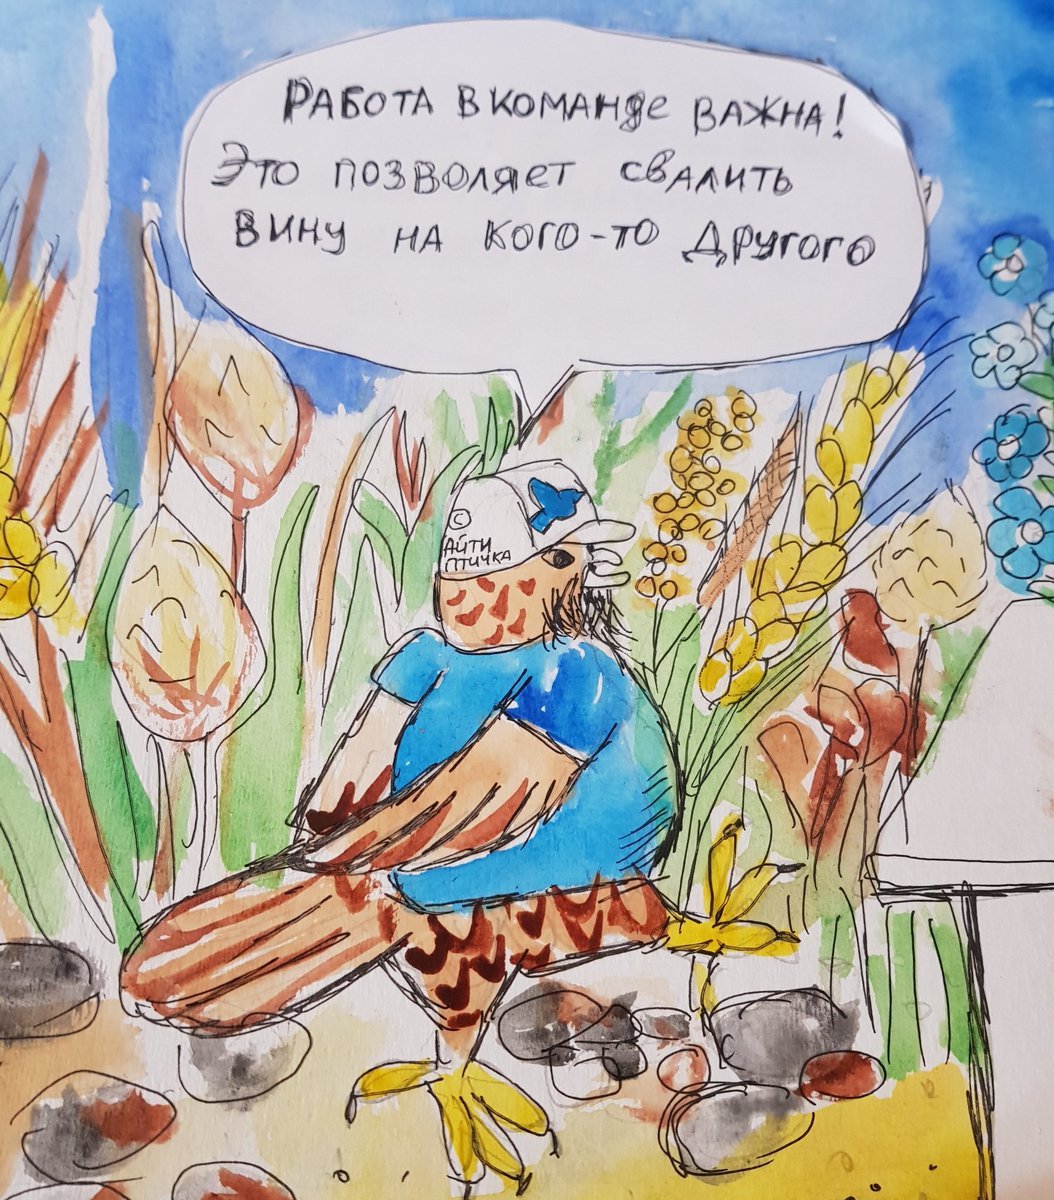 РАБОТА В КОМАНДЕ ВАЖНА!
ЭТО ПОЗВОЛЯЕТ СВАЛИТЬ
ВИНУ НА КОГО-ТО ДРУГОГО
©
АЙТИ
ПТИЧКА